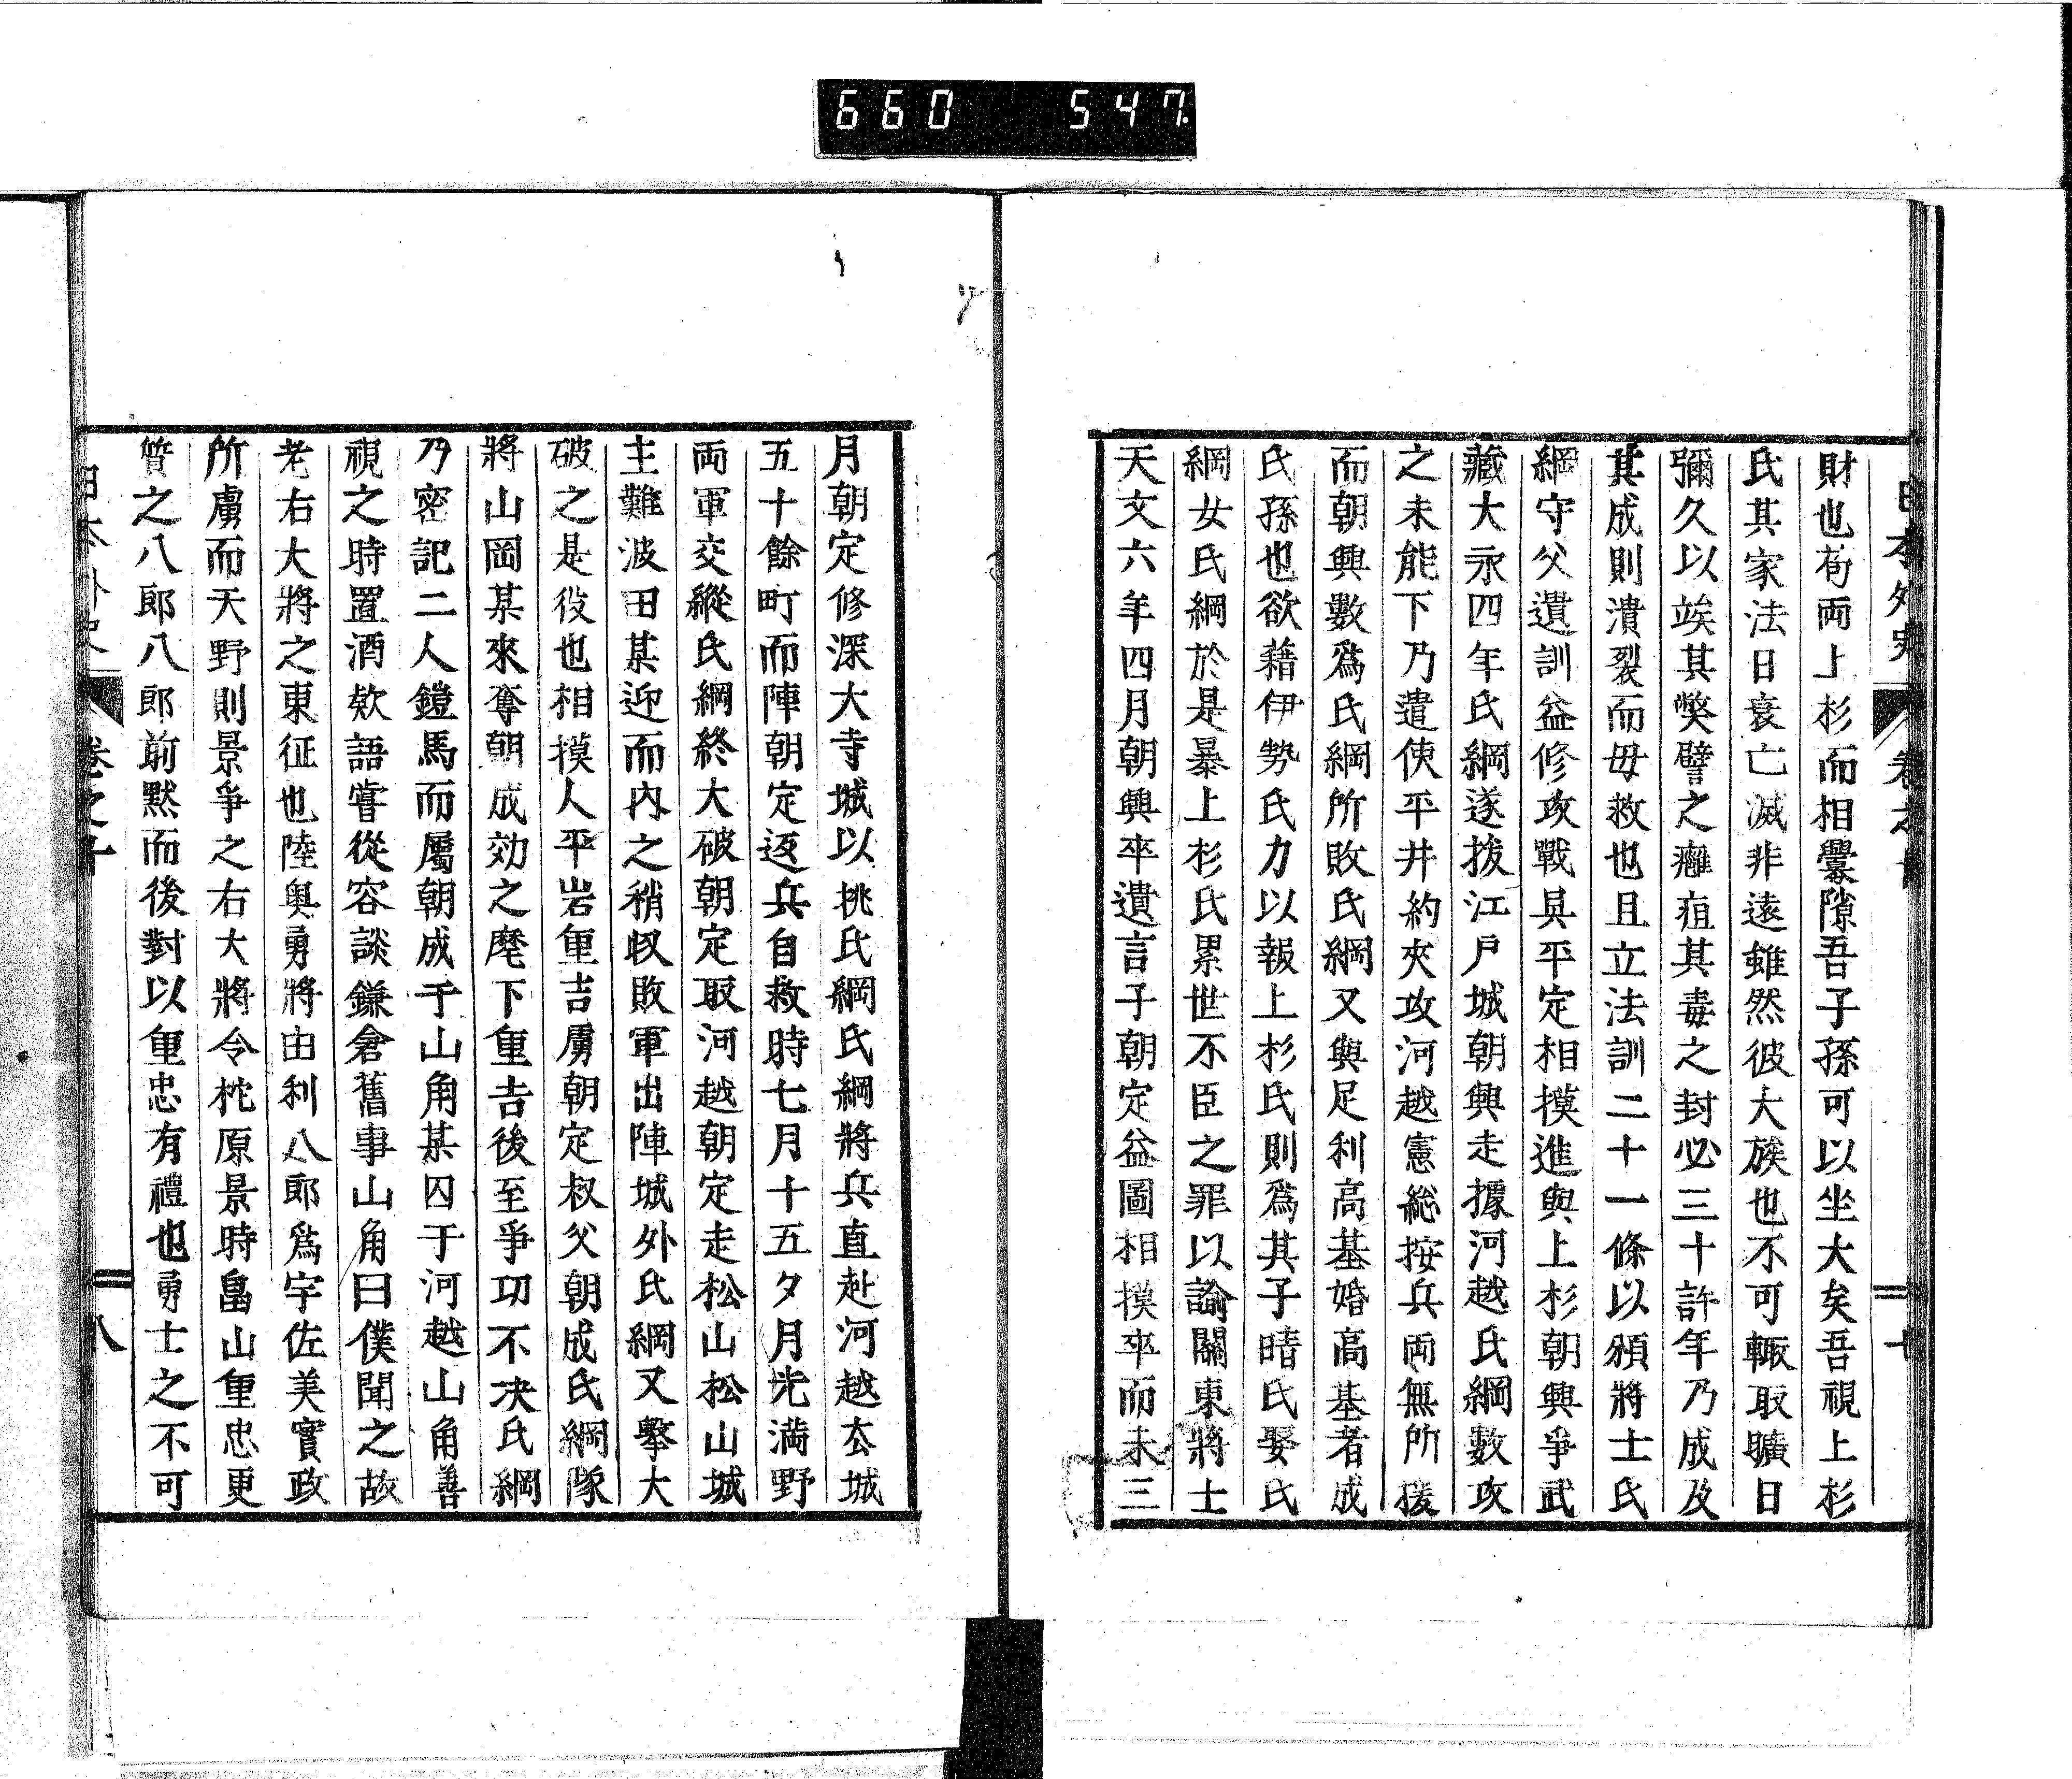 660 547.
日本外史 卷之十 七
財也苟両上杉而相釁隙吾子孫可以坐大矣吾視上杉
氏其家法日衰亡滅非遠雖然彼大族也不可輙取曠日
彌久以竢其弊譬之癰疽其毒之封必三十許年乃成及
其成則潰裂而毋救也且立法訓二十一條以頒將士氏
綱守父遺訓益修攻戰具平定相摸進與上杉朝興爭武
藏大永四年氏綱遂拔江戸城朝興走據河越氏綱數攻
之未能下乃遣使平井約夾攻河越憲総按兵両無所援
而朝興數爲氏綱所敗氏綱又與足利高基婚高基者成
氏孫也欲藉伊勢氏力以報上杉氏則爲其子晴氏娶氏
綱女氏綱於是暴上杉氏累世不臣之罪以諭關東將士
天文六年四月朝興卒遺言子朝定益圖相摸卒而未三
月朝定修深大寺城以挑氏綱氏綱將兵直赴河越去城
五十餘町而陣朝定返兵自救時七月十五夕月光満野
両軍交縱氏綱終大破朝定取河越朝定走松山松山城
主難波田某迎而内之稍収敗軍出陣城外氏綱又擊大
破之是役也相摸人平岩重吉虜朝定叔父朝成氏綱隊
將山岡某來奪朝成効之麾下重吉後至爭功不决氏綱
乃密記二人鎧馬而屬朝成于山角某囚于河越山角善
視之時置酒欵語甞從容談鎌倉舊事山角曰僕聞之故
老右大將之東征也陸奥勇將由利八郎爲宇佐美實政
所虜而天野則景爭之右大將令梶原景時畠山重忠更
質之八郎八郎前黙而後對以重忠有禮也勇士之不可
日本外史 卷之十 八